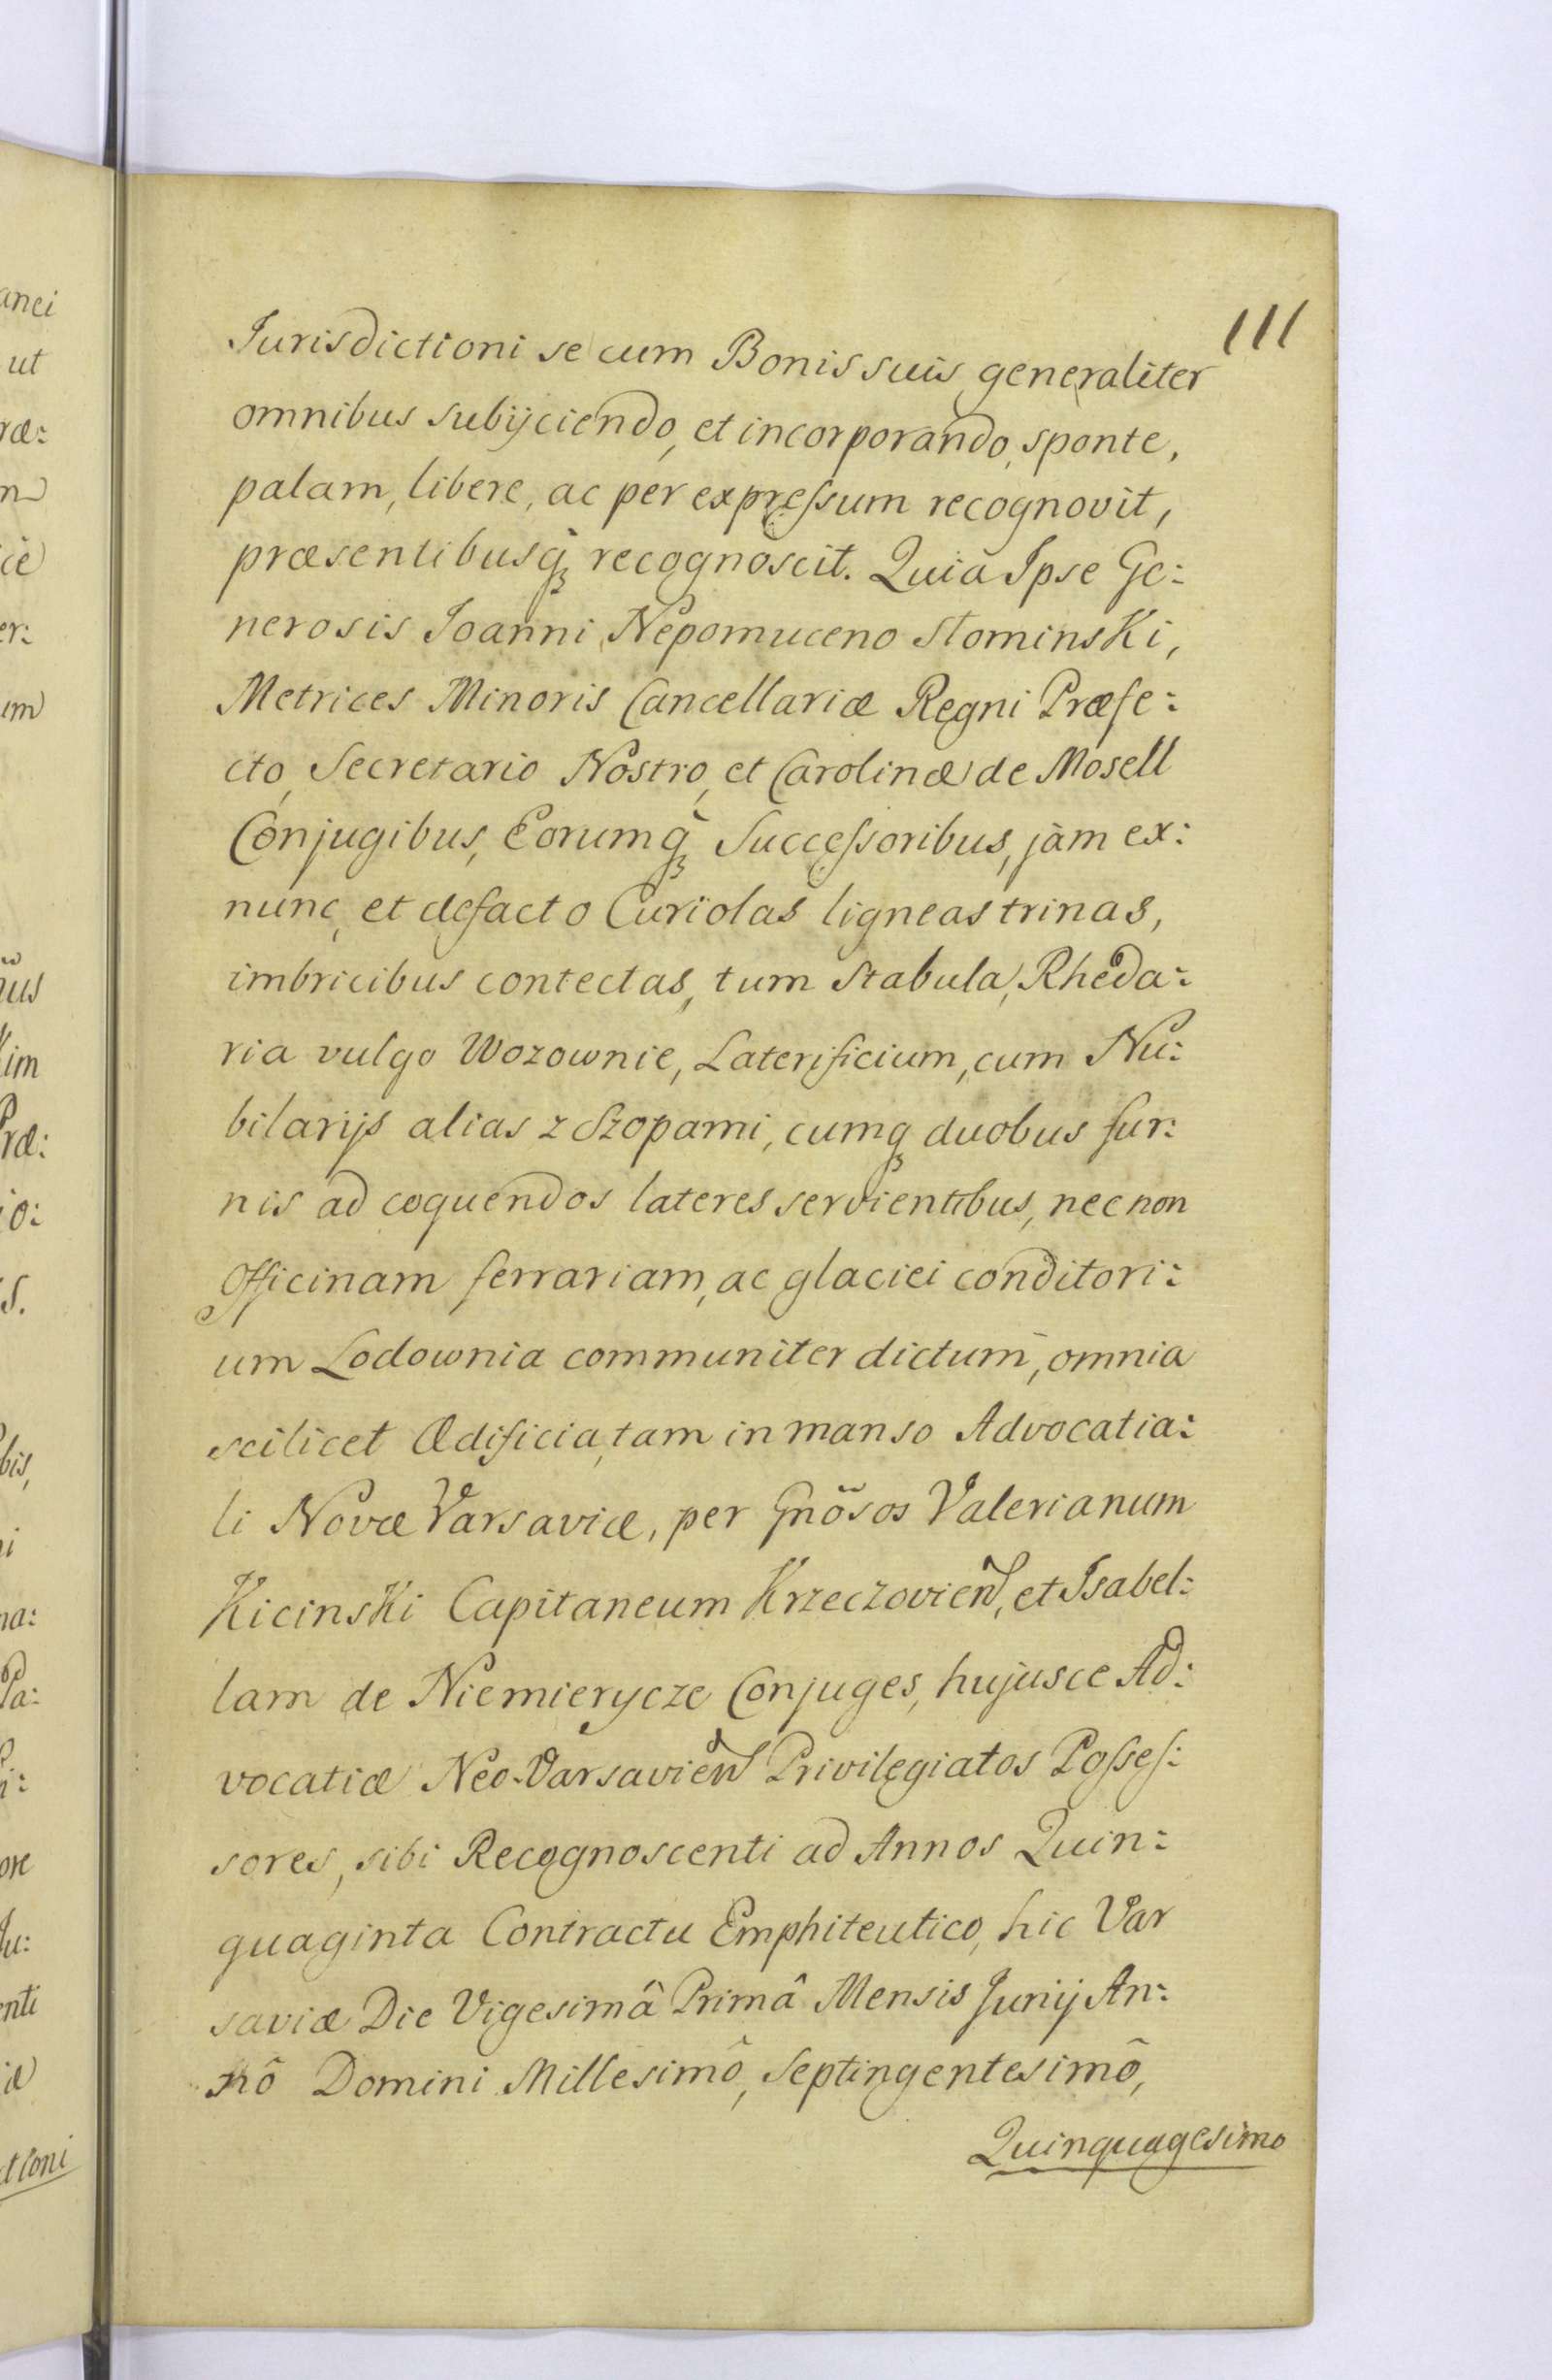 111
Jurisdictioni se cum Bonis suis generaliter
omnibus subijciendo, et incorporando, sponte,
palam, libere, ac per expressum recognovit,
præsentibusq̀ recognoscit. Quia Ipse Ge:
nerosis Joanni Nepomuceno Słominski,
Metrices Minoris Cancellariæ Regni Præfe:
cto, Secretario Nostro, et Carolinæ de Mosell
Conjugibus, Eorumq̀ Successoribus, jàm ex:
nunc, et defacto Curiolas ligneas trinas,
imbricibus contectas, tum Stabula, Rheda:
ria vulgo Wozownie, Laterificium, cum Nu:
bilarijs alias z Szopami, cumq duobus fur:
nis ad coquendos lateres servientibus, nec non
Officinam ferrariam, ac glaciei conditori:
um Lodownia communiter dictum, omnia
scilicet Ædificia, tam in manso Advocatia:
li Novæ Varsaviæ, per Gnõsos Valerianum
Kicinski Capitaneum Krzeczovien, et Isabel:
lam de Niemierycze Conjuges, hujusce Ad:
vocatiæ Neo-Varsavien Privilegiatos Posses:
sores, sibi Recognoscenti ad Annos Quin:
quaginta Contractu Emphiteutico, hic Var
saviæ Die Vigesimâ Primâ Mensis Junij An:
nô Domini Millesimô, Septingentesimô,
Quinquagesimo